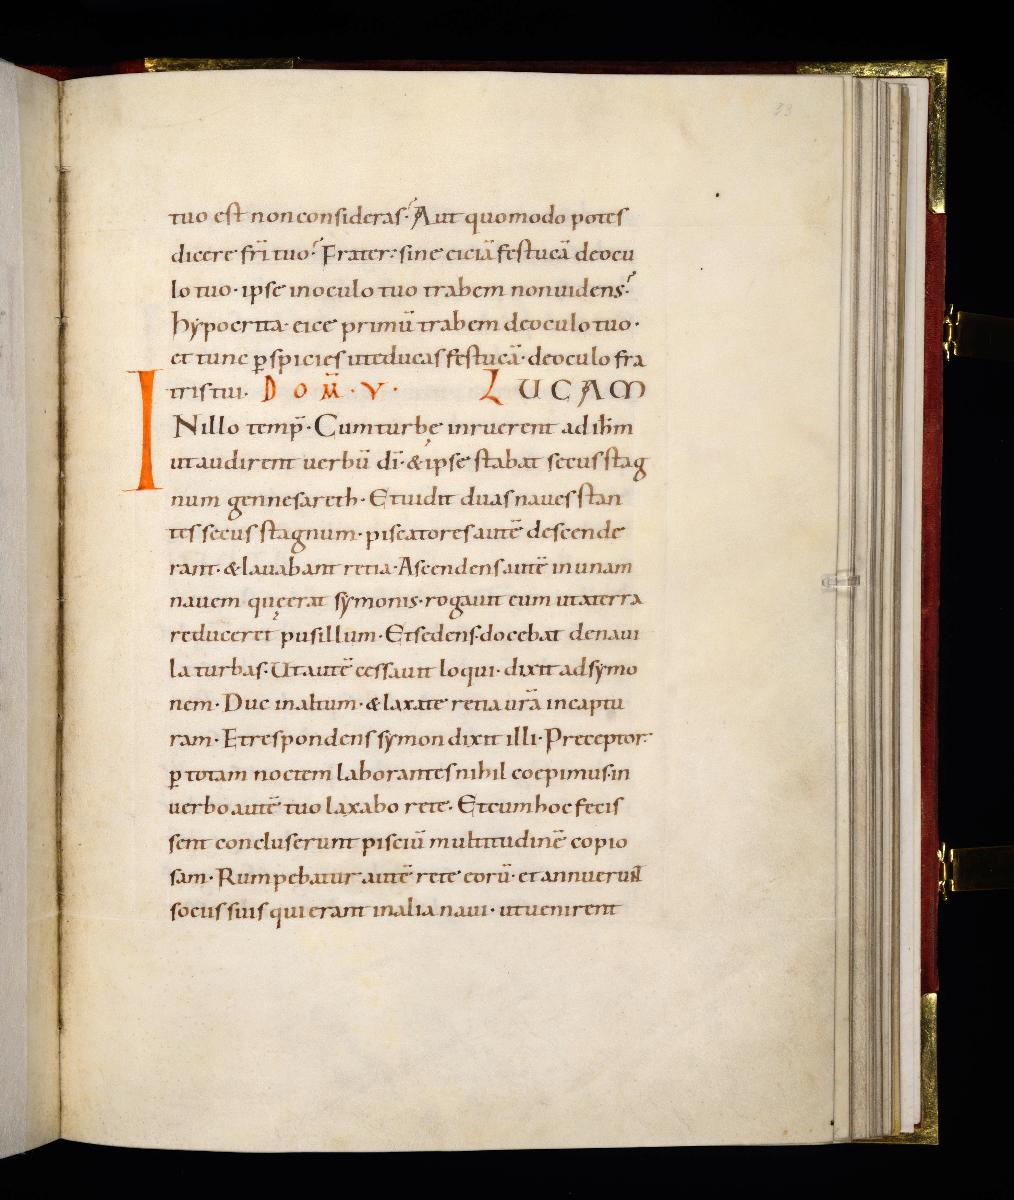 33
tuo est non consideras· Aut quomodo potes
dicere fr̄i tuo· Frater· sine eiciā festucā de ocu
lo tuo· ipse in oculo tuo trabem non uidens·
hypocrita· eice primū trabem de oculo tuo·
et tunc ꝑspicies ut educas festucā· de oculo fra
tris tui· DOM̄·V· LUCAM
IN illo temp̄· Cum turbę inruerent ad ih̄m
ut audirent uerbū dī· & ipse stabat secus stag
num gennesareth· Et uidit duas naues stan
tes secus stagnum· piscatores autē descende
rant· & lauabant retia· Ascendens autē in unam
nauem quę erat symonis· rogauit eum ut a terra
reduceret pusillum· Et sedens· docebat de naui
la turbas· Ut autē cessauit loqui· dixit ad symo
nem· Duc in altum· & laxate retia ur̄a in captu
ram· Et respondens symon dixit illi· Preceptor·
ꝑ totam noctem laborantes nihil coepimus· in
uerbo autē tuo laxabo rete· Et cum hoc fecis
sent concluserunt pisciū multitudinē copio
sam· Rumpebatur autē rete eorū· et annuerunt
sociis suis qui erant in alia naui· ut uenirent